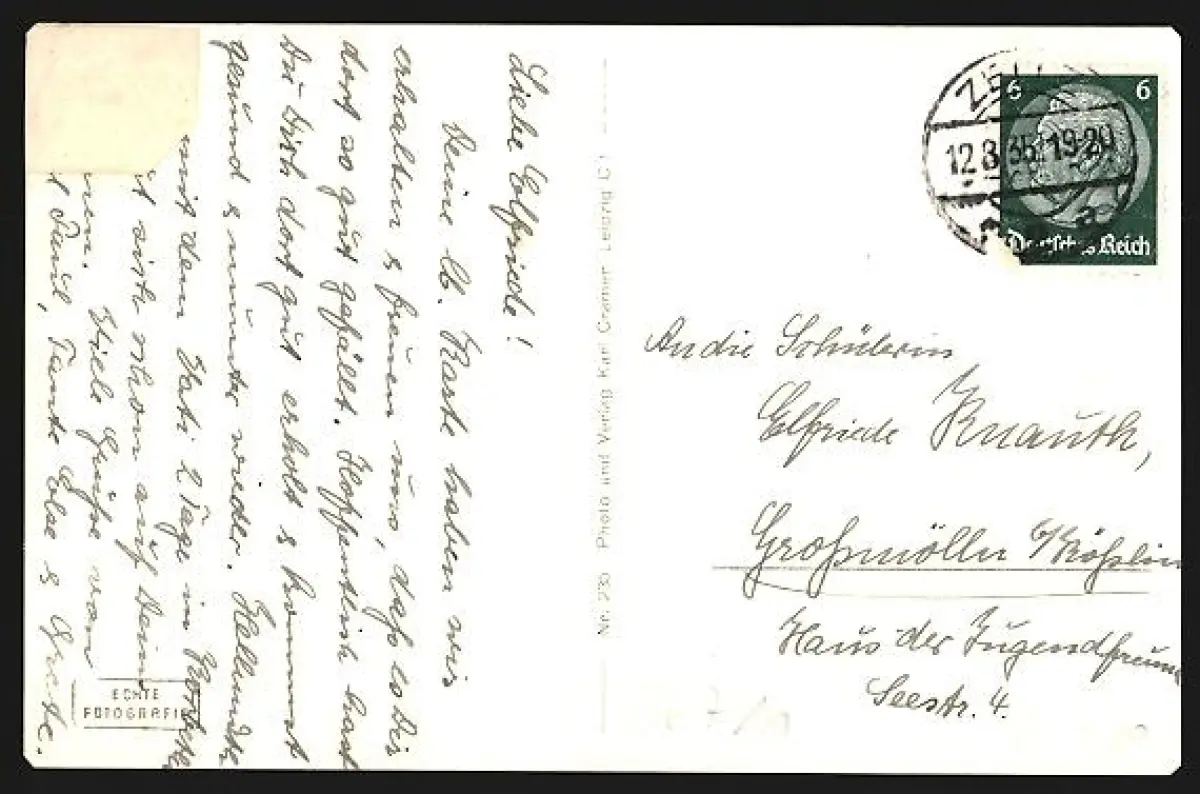 Liebe Elfriede!
Deine lb. Karte haben wir
erhalten & freuen uns, daß es Dir
dort so gut gefällt. Hoffentlich hast
Du Dich dort gut erholt & kommst
gesund & munter wieder.
mit dem 2 Tage in
sich schon auf Dein
Viele Grüße von
Paul, Tante Else & Grete.
ECHTE
FOTOGRAFIE
Nr. 235 Photo und Verlag Karl Cramer Leipzig C 1
12.8.35 19-20
a
6 6
Deutsches Reich
An die Schülerin
Elfriede Knauth,
Großmölln b/Köslin
Haus der Jugendfreun
Seestr. 4.